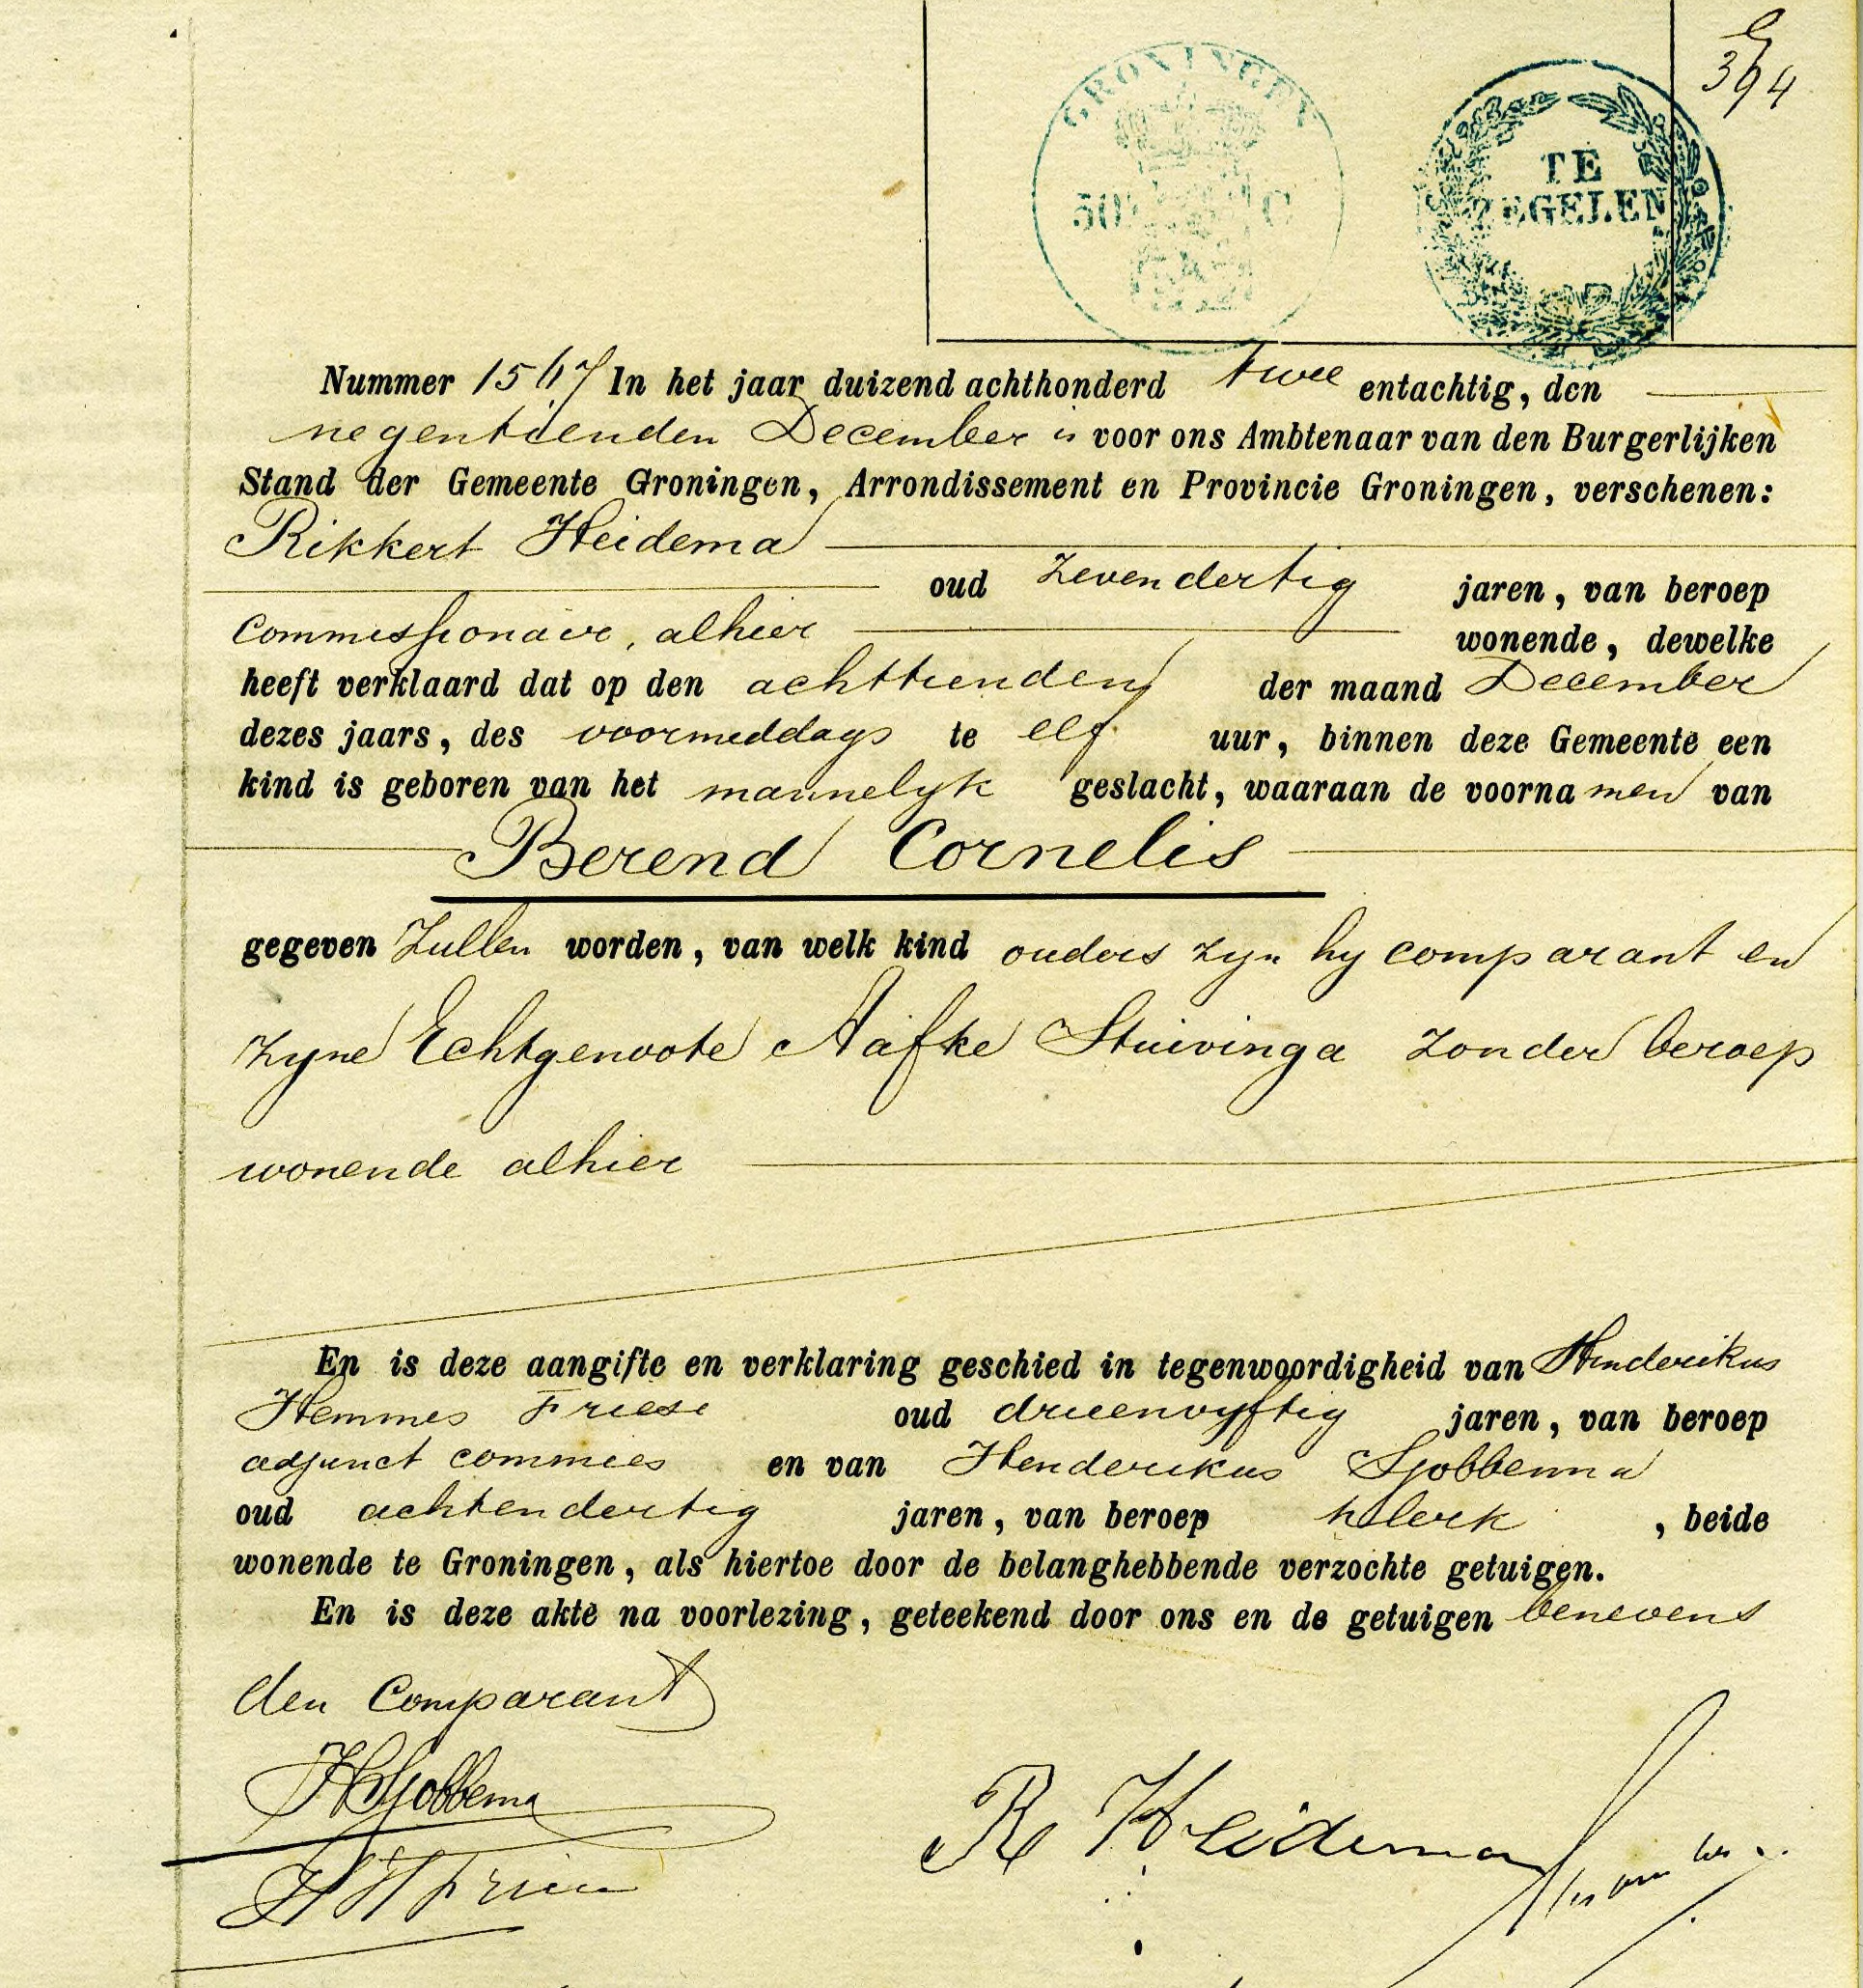 394
GRONINGEN
50 C
TE
ZEGELEN
Nummer 1567 In het jaar duizend achthonderd twee entachtig, den
negentienden December is voor ons Ambtenaar van den Burgerlijken
Stand der Gemeente Groningen, Arrondissement en Provincie Groningen, verschenen:
Rikkert Heidema
oud zevendertig jaren, van beroep
Commissionair, alhier wonende, dewelke
heeft verklaard dat op den achttienden der maand December
dezes jaars, des voormiddags te elf uur, binnen deze Gemeente een
kind is geboren van het mannelyk geslacht, waaraan de voornamen van
Berend Cornelis
gegeven zullen worden, van welk kind ouders zyn hy comparant en
zyne Echtgenoote Aafke Stuivinga zonder beroep
wonende alhier
En is deze aangifte en verklaring geschied in tegenwoordigheid van Henderikus
Hemmes Friese oud drieenvyftig jaren, van beroep
adjunct commies en van Henderikus Sjobbema
oud achtendertig jaren, van beroep klerk, beide
wonende te Groningen, als hiertoe door de belanghebbende verzochte getuigen.
En is deze akte na voorlezing, geteekend door ons en de getuigen benevens
den Comparant
HSjobbema
R Heidema
HH Friese